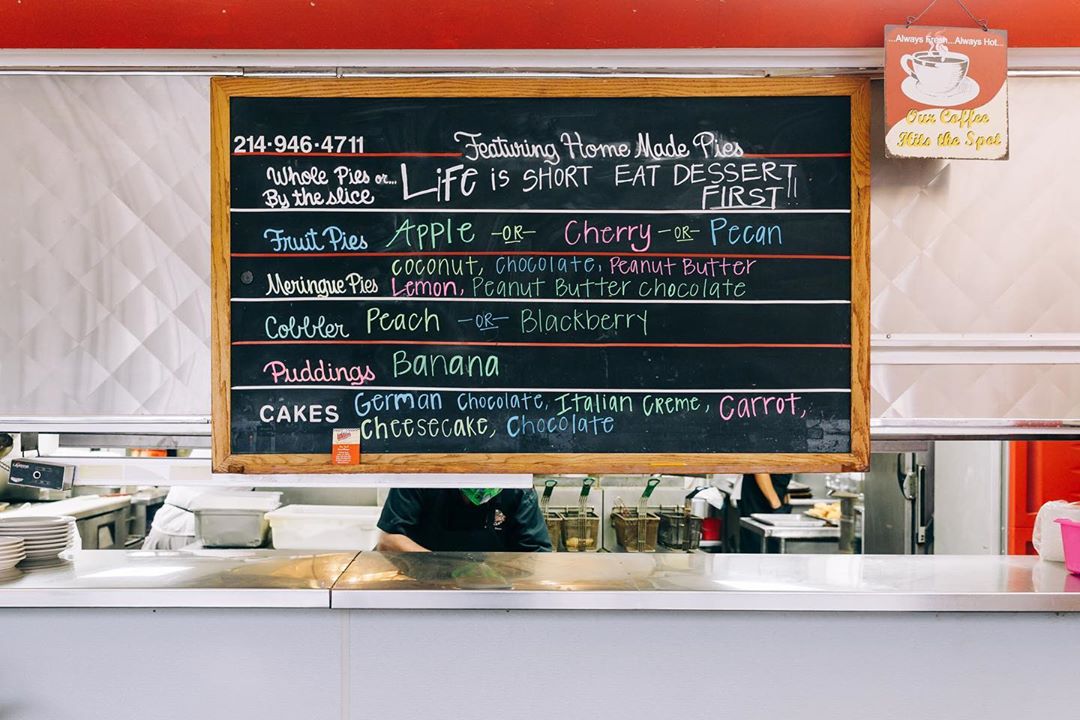 ...Always Fresh...Always Hot...
Our Coffee
Hits the Spot
214-946-4711
Featuring Home Made Pies
Whole Pies or...
By the slice
LiFe is SHORT EAT DESSERT
FIRST!!
Fruit Pies Apple -OR- Cherry -OR- Pecan
Meringue Pies coconut, chocolate, Peanut Butter
Lemon, Peanut Butter chocolate
Cobbler Peach -OR- Blackberry
Puddings Banana
CAKES German chocolate, Italian creme, carrot,
cheesecake, chocolate